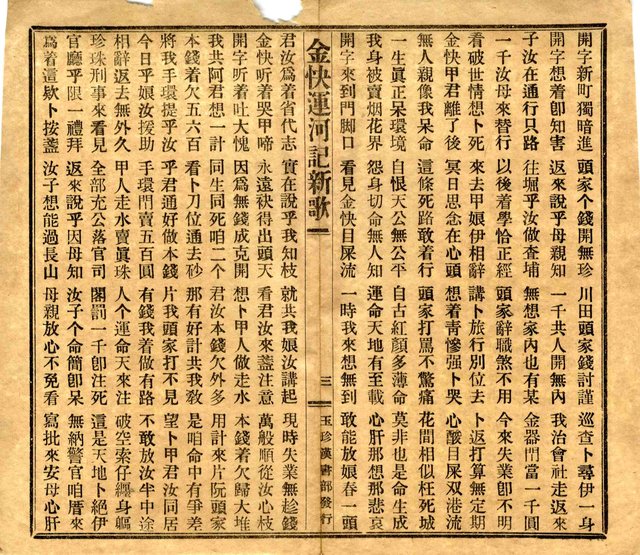 開字新町獨暗進 頭家个錢開無珍 川田頭家錢討謹 巡查卜尋伊一身
開字想着卽知害 返來說乎母親知 一千共人開無內 我治會社走返來
子汝在通行只路 往堀乎汝做查埔 無想家內也有某 金器門當一千圓
一千汝母來替行 以後着學恰正經 頭家辭職煞不用 今來失業卽不明
看破世情想卜死 來去甲娘伊相辭 講卜旅行別位去 卜返打算無定期
金快甲君離了後 冥日思念在心頭 想着青慘强卜哭 心酸目屎双港流
無人親像我呆命 這條死路敢着行 頭家打罵不驚痛 花間相似枉死城
一生眞正呆環境 自恨天公無公平 自古紅顏多薄命 莫非也是命生成
我身被賣烟花界 怨身切命無人知 運命天地有至載 心肝那想那悲哀
開字來到門脚口 看見金快目屎流 一時我來想無到 敢能放娘春一頭
金快運河記新歌 三 玉珍漢書部發行
君汝爲着省代志 實在說乎我知枝 就共我娘汝講起 現時失業無趁錢
金快听着哭甲啼 永遠袂得出頭天 看君汝來盞注意 萬般順從汝心枝
開字听着吐大愧 因爲無錢成克開 想卜甲人做走水 本錢着欠歸大堆
我共阿君想一計 同生同死咱二个 君汝本錢欠外多 用計來片阮頭家
本錢着欠五六百 看卜刀位通去砂 那有好計共我敎 是咱命中有爭差
將我手環提乎汝 乎君通好做本錢 片我頭家打不見 望卜甲君汝同居
今日乎娘汝援助 手環門賣五百圓 有錢我着做有路 不敢放汝半中途
相辭返去無外久 甲人走水賣眞珠 人个運命天來注 破空索仔纏身軀
珍珠刑事來看見 全部充公落官司 閣罰一千卽注死 這是天地卜絕伊
官廳乎限一禮拜 返來說乎因母知 汝子个命簡卽呆 無納警官咱厝來
爲着這欵卜按盞 汝子想能過長山 母親放心不免看 寫批來安母心肝